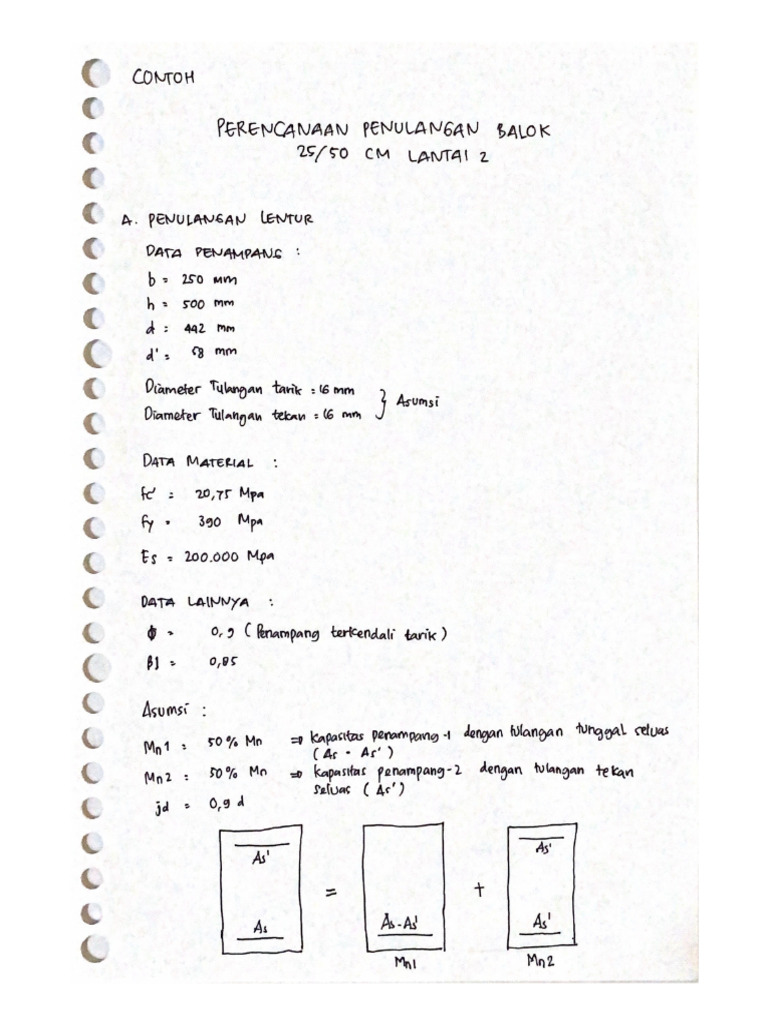 CONTOH
PERENCANAAN PENULANGAN BALOK
25/50 CM LANTAI 2
A. PENULANGAN LENTUR
DATA PENAMPANG :
b = 250 mm
h = 500 mm
d = 442 mm
d' = 58 mm
Diameter Tulangan tarik = 16 mm
Diameter Tulangan tekan = 16 mm } Asumsi
DATA MATERIAL :
fc' = 20,75 Mpa
fy = 390 Mpa
Es = 200.000 Mpa
DATA LAINNYA :
ϕ = 0,9 (Penampang terkendali tarik)
β1 = 0,85
Asumsi :
Mn1 = 50% Mn => kapasitas penampang-1 dengan tulangan tunggal seluas
(As - As')
Mn2 = 50% Mn => kapasitas penampang-2 dengan tulangan tekan
seluas (As')
jd = 0,9 d
As' As'
= +
As As-As' As'
Mn1 Mn2